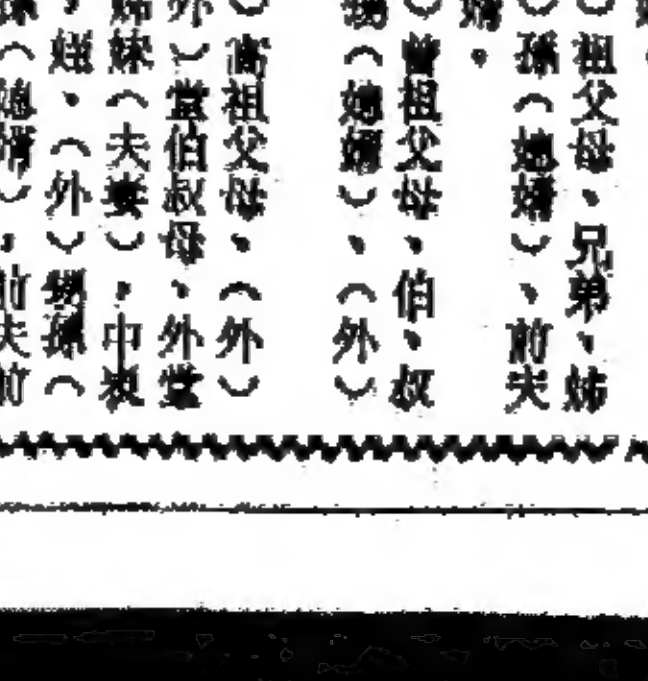 ）祖父母、兄弟、姊
）孫（媳婿）、前夫
婿。
）曾祖父母、伯、叔
甥（媳婿）、（外）
）高祖父母、（外）
外）堂伯叔母、外堂
姊妹（夫妻），中表
、姪、（外）甥孫（
（媳婿），前夫前